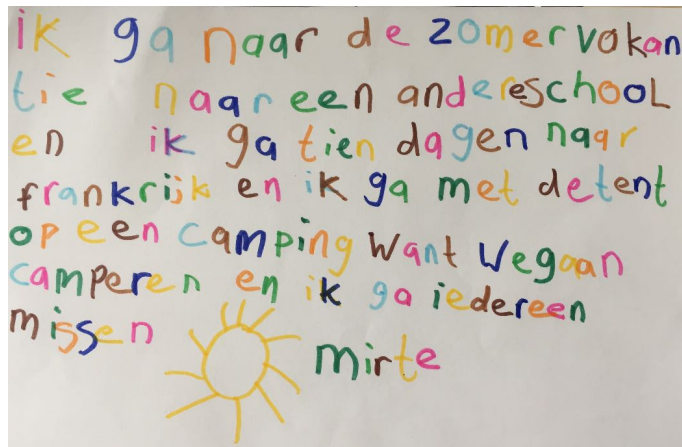 ik ga naar de zomervokan
tie naar een andereschool
en ik ga tien dagen naar
frankrijk en ik ga met detent
op een camping want wegaan
camperen en ik ga iedereen
missen
mirte